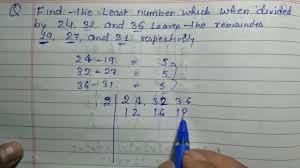 Q Find the Least number which when divided
by 24, 32, and 36 Leaves the remainder
19, 27, and 31 respectively
24 - 19 = 5
32 - 27 = 5
36 - 31 = 5
2 24, 32 36
12 16 18